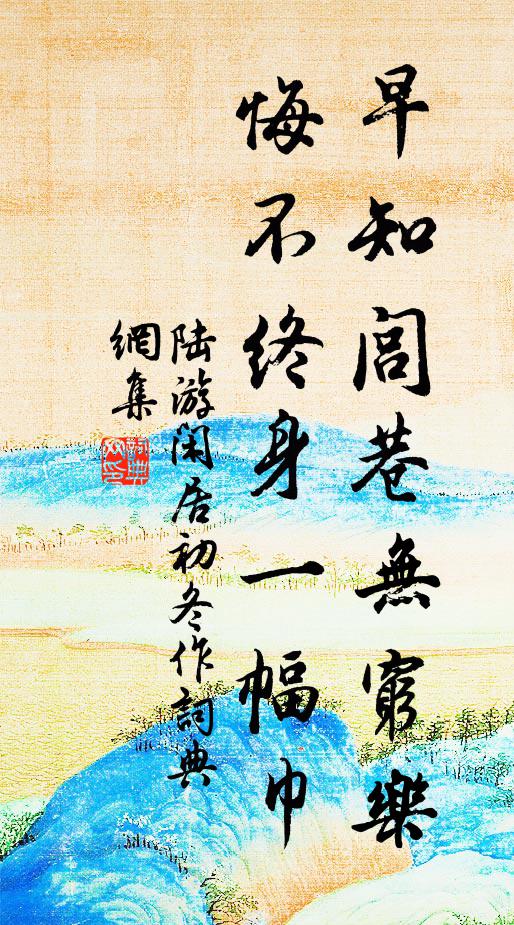 早知閭巷無窮樂
悔不終身一幅巾
陆游閑居初冬作詞典
網集